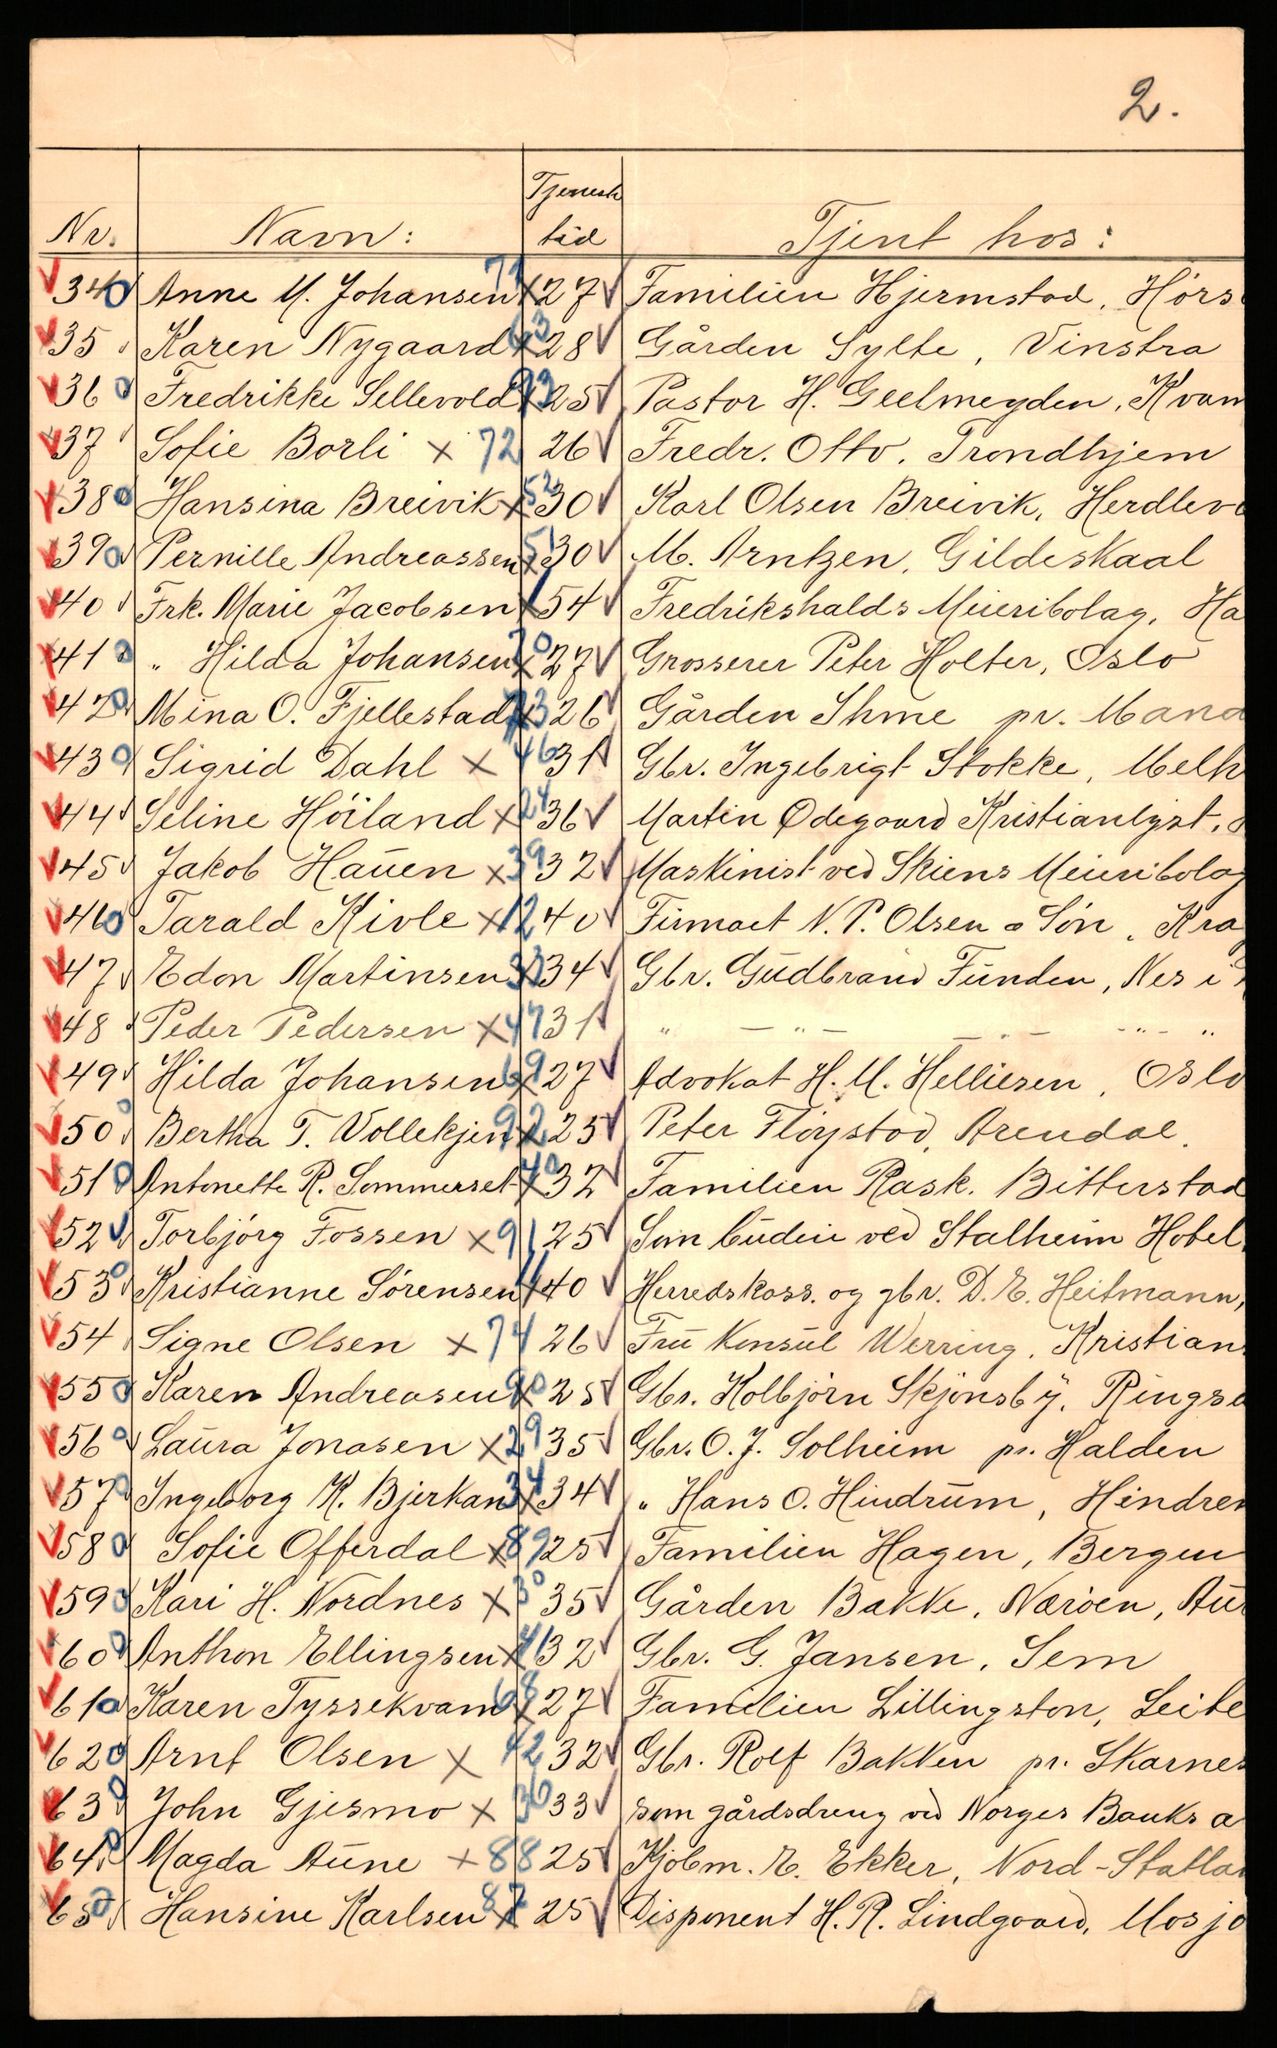 2.
Nr. Navn: Tjeneste tid Tjent hos:
34 Anne M. Johansen 71 x 27 Familien Hjermstad, Hörs
35 Karen Nygaard 63 x 28 Gården Sylte, Vinstra
36 Fredrikke Sellevold x 25 Pastor H. Geelmeyden, Kvam
37 Sofie Borli x 72 26 Fredr. Otto, Trondhjem
38 Hansina Breivik x 52 30 Karl Olsen Breivik, Herdlev
39 Pernille Andreassen x 51 30 M. Arntzen, Gildeskaal
40 Frk. Marie Jacobsen x 1 54 Fredrikshalds Meieribolag, Ha
41 " Hilda Johansen x 70 27 Grosserer Peter Holter, Oslo
42 Mina O. Fjellestad x 73 26 Gården Ihme pr. Mand
43 Sigrid Dahl x 46 31 Gbr. Ingebrigt Stokke, Melh
44 Seline Höiland x 24 36 Martin Ødegaard Kristianlyst,
45 Jakob Hauen x 39 32 Maskinist ved Skiens Meieribolag
46 Tarald Kivle x 12 40 Firmaet N. P. Olsen & Sön, Kra
47 Edon Martinsen x 33 34 Gbr. Gudbrand Funden, Nes i
48 Peder Pedersen x 47 31 " — " — " — " — "
49 Hilda Johansen x 69 27 Advokat H. M. Helliesen, Oslo
50 Bertha T. Vollekjen x 92 25 Peter Flöystad, Arendal.
51 Antonette R. Sommerset x 40 32 Familien Rask. Bitterstad
52 Torbjörg Fossen x 91 25 Som budeie ved Stalheim Hotel
53 Kristianne Sörensen x 11 40 Herredskass. og gbr. D. E. Heitmann,
54 Signe Olsen x 74 26 Fru Konsul Werring, Kristian
55 Karen Andreasen x 90 25 Gbr. Kolbjörn Skjönsby, Ringsa
56 Laura Jonasen x 29 35 Gbr. O. J. Solheim pr. Halden
57 Ingeborg K. Bjerkan x 34 34 " Hans O. Hindrum, Hindrem
58 Sofie Offerdal x 89 25 Familien Hagen, Bergen
59 Kari H. Nordnes x 30 35 Gården Bakke, Næröen, Aur
60 Anthon Ellingsen x 41 32 Gbr. G. Jansen, Sem
61 Karen Tyssekvam x 68 27 Familien Lillingston, Leite
62 Arnt Olsen x 42 32 Gbr. Rolf Bakken pr. Skarnes
63 John Gjesmo x 36 33 som gårdsdreng ved Norges Banks a
64 Magda Aune x 88 25 Kjöbm. E. Ekker, Nord-Statla
65 Hansine Karlsen x 87 25 Disponent H. R. Lindgaard, Mosjö